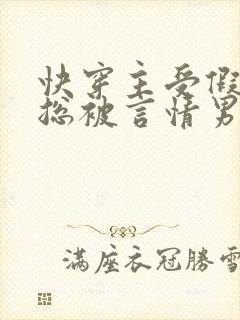 快穿主受假
总被言情男
满座衣冠勝雪